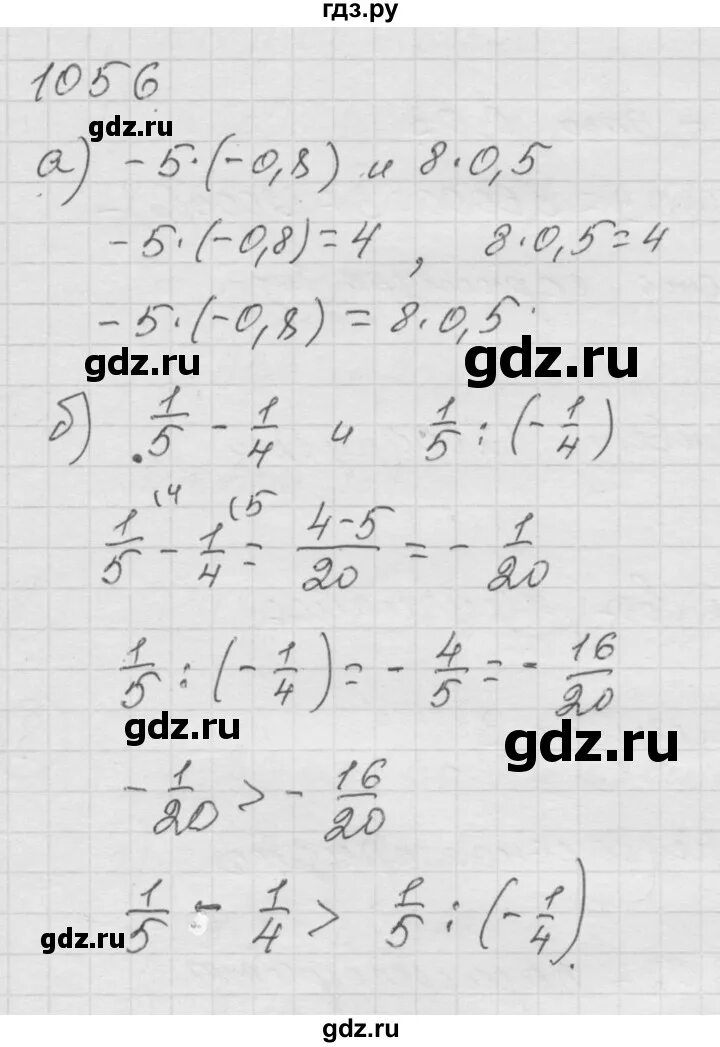 гдз.ру
1056
gdz.ru
а) -5·(-0,8) и 8·0,5
-5·(-0,8)=4, 8·0,5=4
-5·(-0,8)=8·0,5.
gdz.ru gdz.ru
б) 1/5 - 1/4 и 1/5 : (-1/4)
1/5 (4 - 1/4 (5 = (4-5)/20 = - 1/20
1/5 : (-1/4) = - 4/5 = - 16/20
gdz.ru gdz.ru
- 1/20 > - 16/20
1/5 - 1/4 > 1/5 : (-1/4).
gdz.ru
gdz.ru